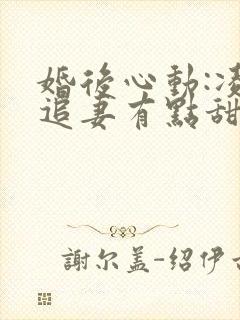 婚後心動:凌
追妻有點甜
謝尔盖-绍伊古